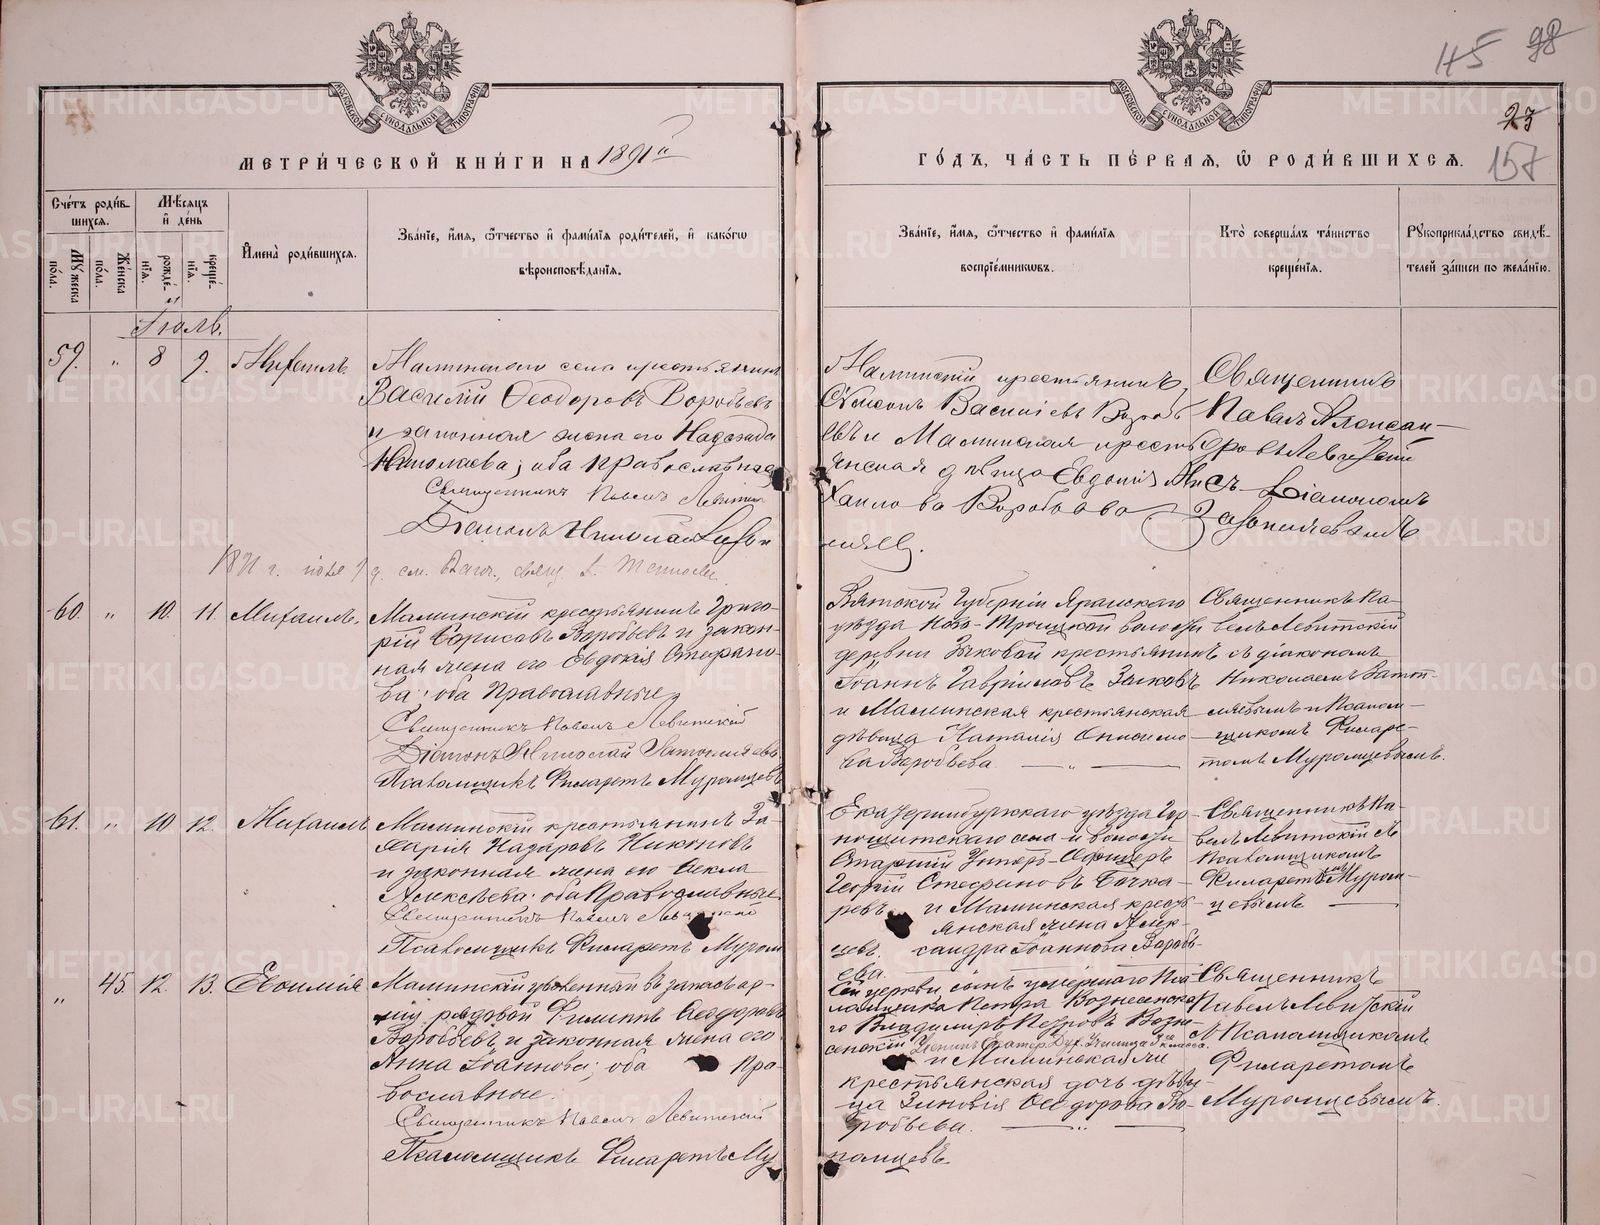 115 98
27
157
МОСКОВСКОЙ СѴНОДАЛЬНОЙ ТИПОГРАФІИ
МОСКОВСКОЙ СѴНОДАЛЬНОЙ ТИПОГРАФІИ
МЕТРИ́ЧЕСКОЙ КНИ́ГИ НА 1891й
ГО́ДЪ, ЧА́СТЬ ПЕ́РВАЯ, Ѡ҆ РОДИ́ВШИХСЯ.
Сче́тъ роди́в-
шихся.
Му́жеска по́ла.
Же́нска по́ла.
Мѣ́сяцъ
и҆ де́нь
рожде́-
нїя.
креще́-
нїя.
И҆мена̀ роди́вшихся.
Зва́нїе, и҆́мя, ѻ҆́тчество и҆ фами́лїя роди́телей, и҆ како́гѡ
вѣроисповѣ́данїя.
Зва́нїе, и҆́мя, ѻ҆́тчество и҆ фами́лїя
воспрїе́мникѡвъ.
Кто̀ соверша́лъ та́инство
креще́нїя.
Рꙋкоприкла́дство свидѣ́-
телей за́писи по жела́нїю.
Іюль.
59. " 8 9. Михаилъ.
Маминскаго села крестьянинъ
Василій Ѳеодоровъ Воробьевъ
и законная жена его Надежда
Николаева; оба православные
Священникъ Павелъ Левитскій
Діаконъ Николай Затоп
Маминскій крестьянинъ
Симеонъ Васильевъ Вороб
евъ и Маминская кресть
янская дѣвица Евдокія Ми
хаилова Воробьева.
ляевъ.
Священникъ
Павелъ Александ-
ровъ Левитскій
съ Діакономъ
Затопляевымъ
60. " 10. 11. Михаилъ.
Маминскій крестьянинъ Григо-
рій Борисовъ Воробьевъ и закон-
ная жена его Евдокія Стефано-
ва; оба Православные
Священникъ Павелъ Левитскій
Діаконъ Николай Затопляевъ
Псаломщикъ Филаретъ Муромцевъ
Вятской Губерніи Яранскаго
уѣзда Ново-Троицкой волости
деревни Зыковой крестьянинъ
Іоаннъ Гавріиловъ Зыковъ
и Маминская крестьянская
дѣвица Наталія Онисимо-
ва Воробьева — " —
Священникъ Па-
велъ Левитскій
съ діакономъ
Николаемъ Затоп-
ляевымъ и Псалом-
щикомъ Филаре-
томъ Муромцевымъ.
61. " 10 12. Михаилъ
Маминскій крестьянинъ За-
харія Назаровъ Никоновъ
и законная жена его Ѳекла
Алексѣева; оба Православные
Священникъ Павелъ Левитскій
Псаломщикъ Филаретъ Муром
Екатеринбургскаго уѣзда Гор-
нощитскаго села и волости
Старшій Унтеръ-Офицеръ
Георгій Стефановъ Бочка-
ревъ и Маминская кресть
янская жена Алек-
сандра Іоаннова Воробь-
ева.
цевъ.
Священникъ Па-
велъ Левитскій съ
Псаломщикомъ
Филаретомъ Муром-
цевымъ —
" 45. 12. 13. Евфимія
Маминскій уволенный въ запасъ ар-
міи рядовой Филиппъ Ѳеодоровъ
Воробьевъ и законная жена его
Анна Іоаннова; оба Пра-
вославные.
Священникъ Павелъ Левитскій
Псаломщикъ Филаретъ Му
Сей церкви сынъ умершаго Пса
ломщика Петра Вознесенска
го Владимиръ Петровъ Возне-
сенскій Ученикъ Екатер. Дух. Училища 3го класса.
и Маминская
крестьянская дочь дѣви-
ца Зиновія Ѳеодорова Во-
робьева. — " —
ромцевъ
Священникъ
Павелъ Левитскій
съ Псаломщикомъ
Филаретомъ
Муромцевымъ.
METRIKI.GASO-URAL.RU